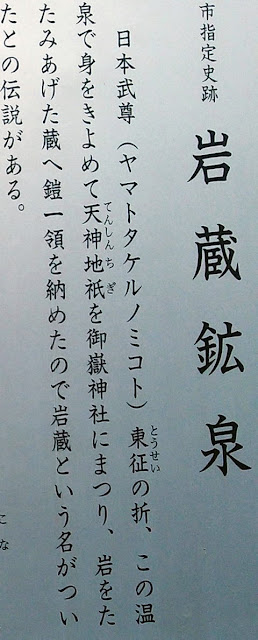 市指定史跡
岩蔵鉱泉
日本武尊（ヤマトタケルノミコト）東征の折、この温
とうせい
泉で身をきよめて天神地祇を御嶽神社にまつり、岩をた
てんしんちぎ
たみあげた蔵へ鎧一領を納めたので岩蔵という名がつい
たとの伝説がある。
こな